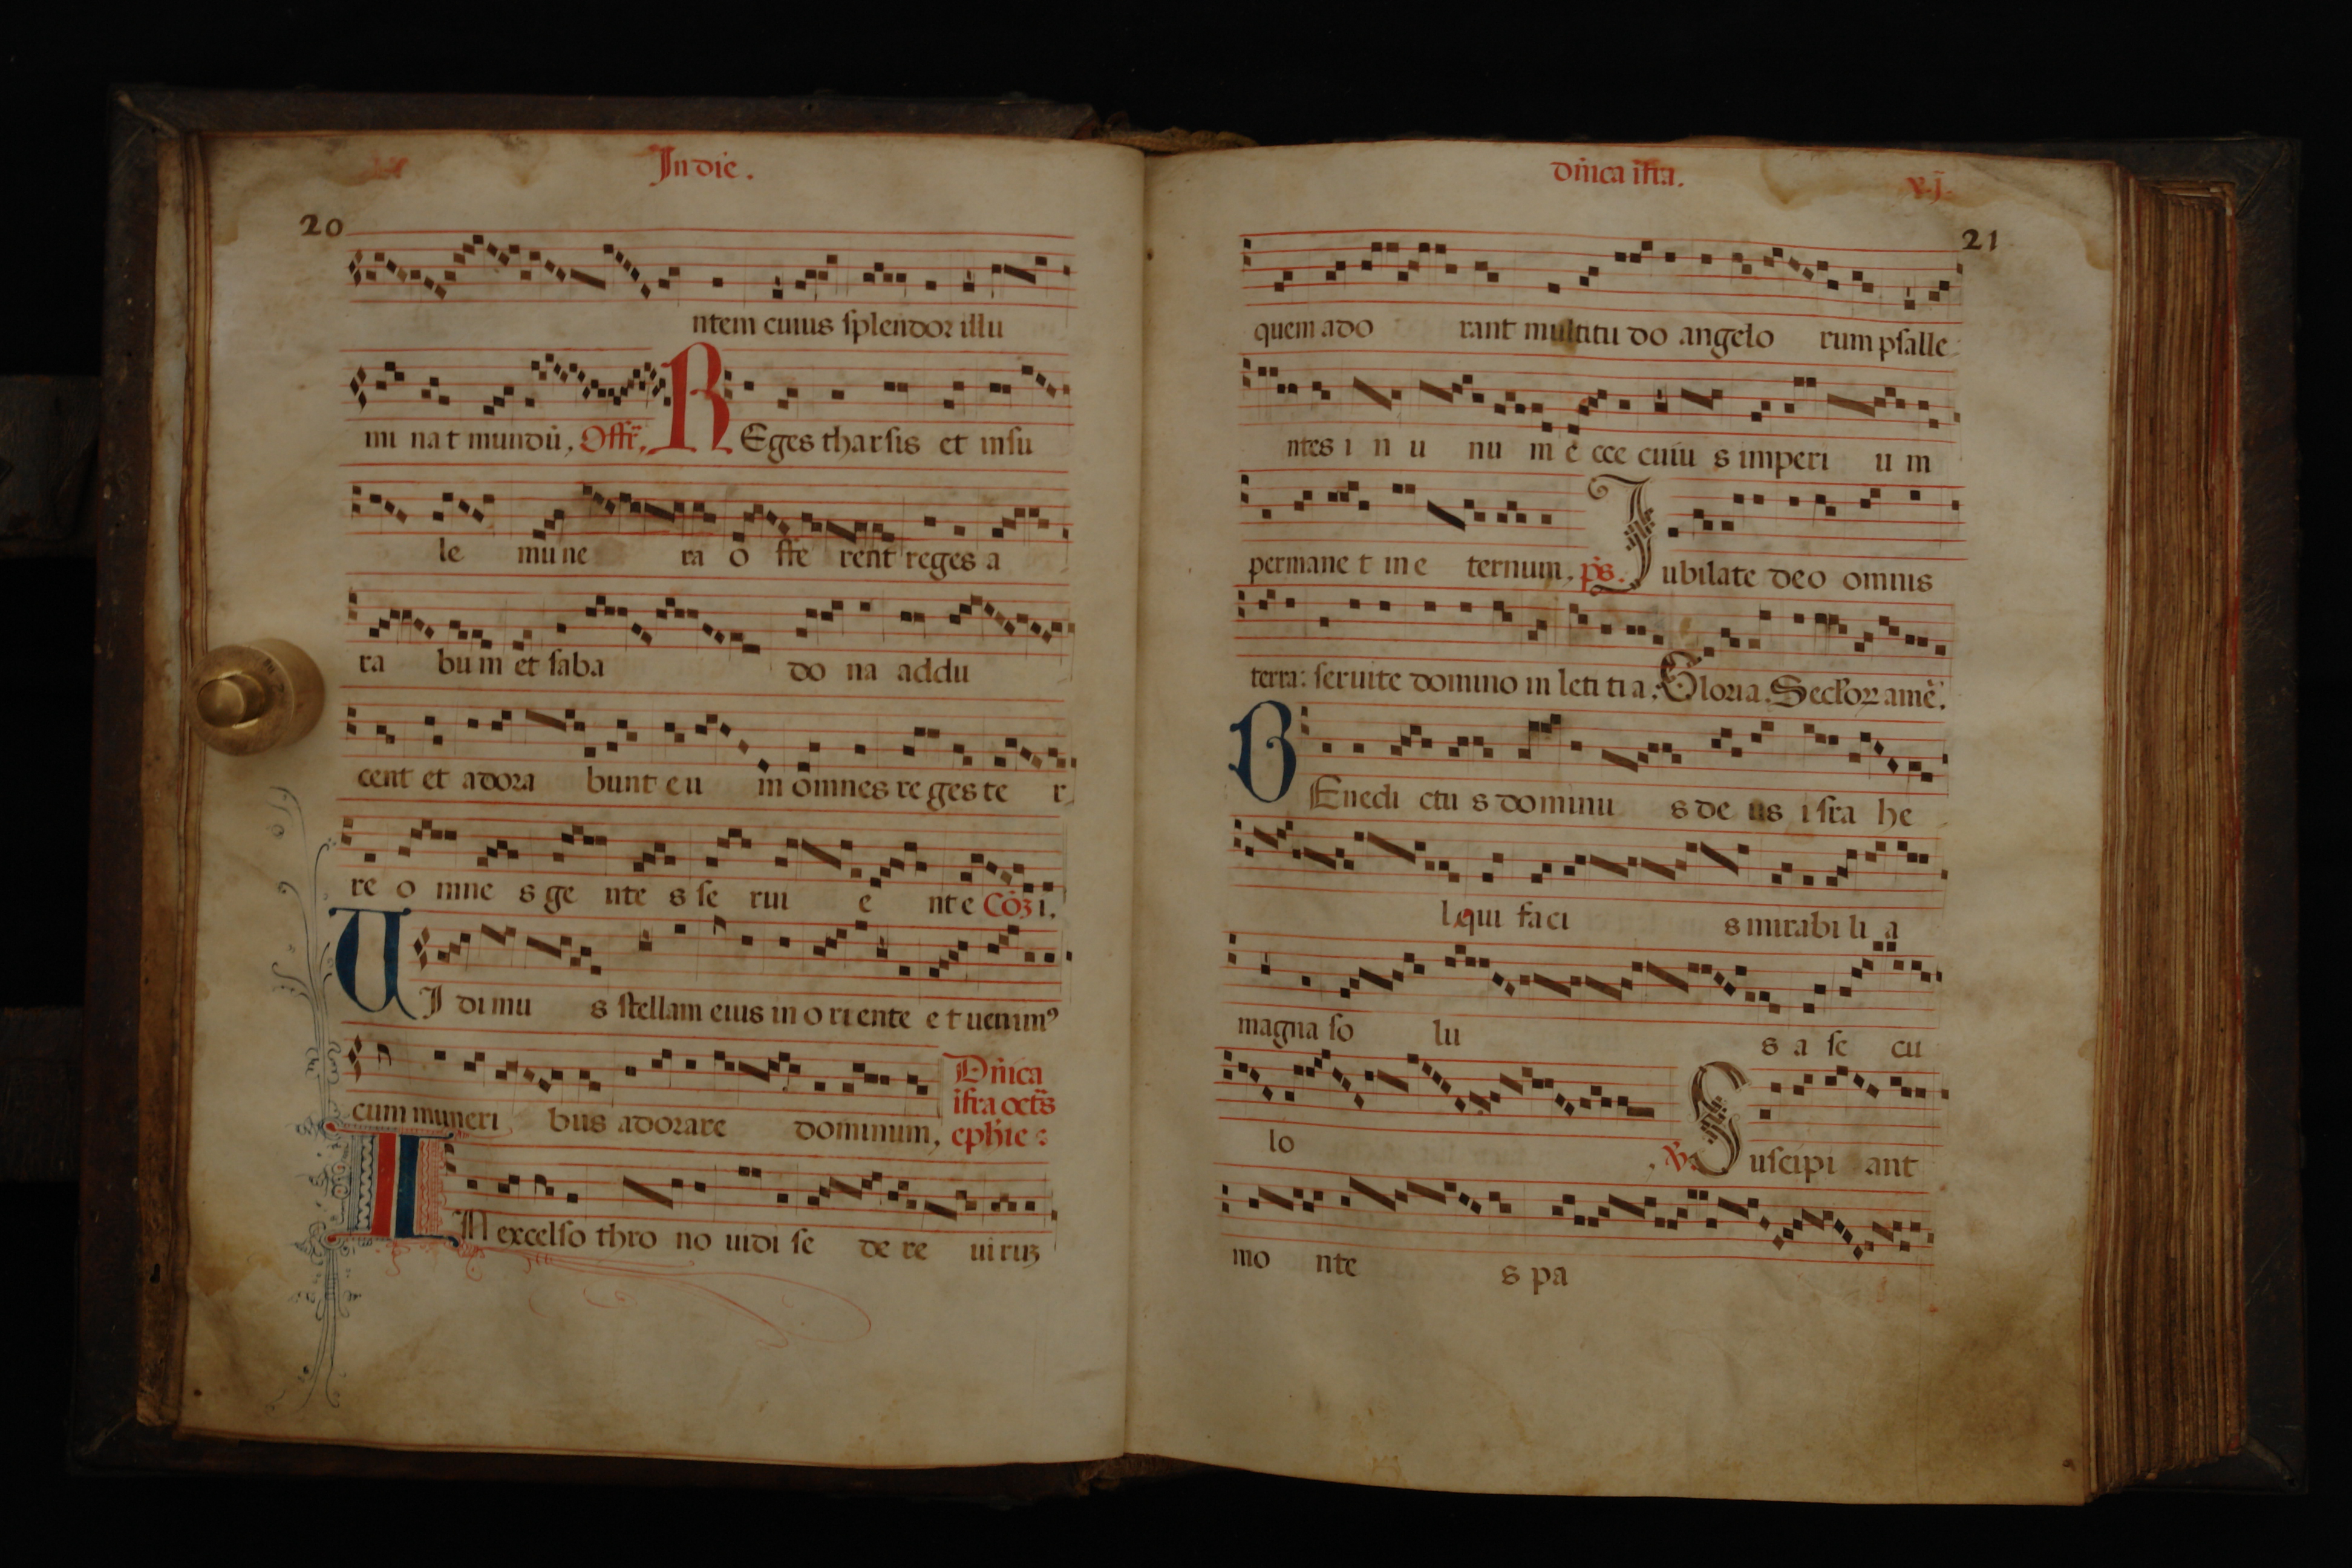 In die.
20
ntem cuius splendor illu
mi nat mundū, Offr̄. REges tharsis et insu
le mune ra o ffe rent reges a
ra bum et saba do na addu
cent et adora bunt eu m omnes re ges te r
re o mne s ge nte s se rui e nte Cōꝫi.
UI dimu s stellam eius in o ri ente e t uenimꝰ
cum muneri bus adorare dominum,
Dn̄ica
ifra octꝭ
eph̄ie :
IN excelso thro no uidi se de re ui ruꝫ
dn̄ica ifra.
x.j.
21
quem ado rant multitu do angelo rum psalle
ntes i n u nu m e cce cuiu s imperi u m
permane t in e ternum, p̄s. Jubilate deo omnis
terra: seruite domino in leti ti a: Gloria. Secl'oꝝ amē.
BEnedi ctu s dominu s de us i sra he
l qui faci s mirabi li a
magna so lu s a se cu
lo , ℣. Suscipi ant
mo nte s pa